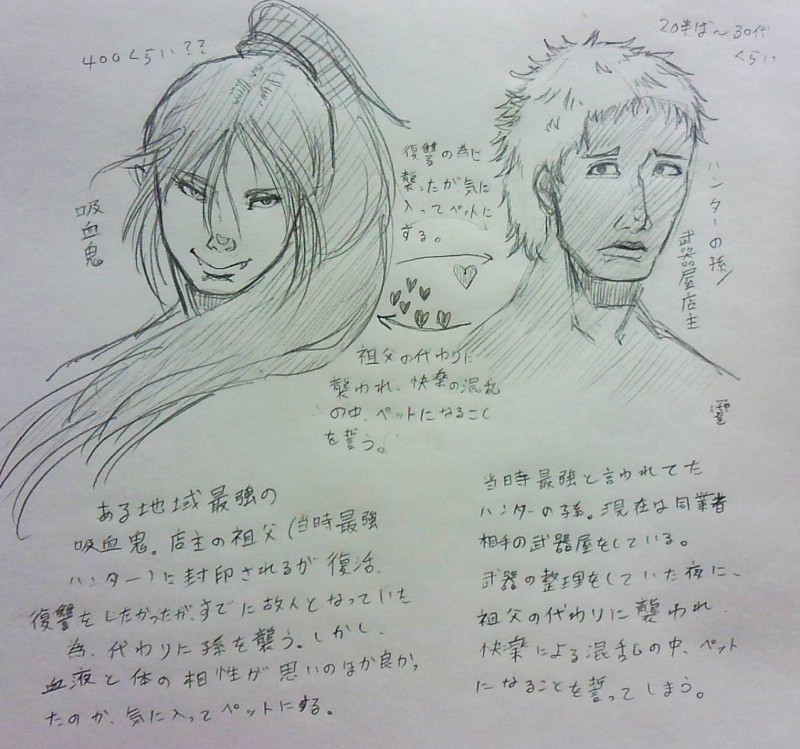 400くらい??
20半ば～30代
くらい
吸血鬼
復讐の為に
襲ったが気に
入ってペットに
する。
ハンターの孫/
武器屋店主
祖父の代わりに
襲われ、快楽の混乱
の中、ペットになること
を誓う。
ある地域最強の
吸血鬼。店主の祖父(当時最強
ハンター)に封印されるが復活。
復讐をしたかったが、すでに故人となっていた
為、代わりに孫を襲う。しかし、
血液と体の相性が思いのほか良かっ
たのか、気に入ってペットにする。
当時最強と言われてた
ハンターの孫。現在は同業者
相手の武器屋をしている。
武器の整理をしていた夜に、
祖父の代わりに襲われ、
快楽による混乱の中、ペット
になることを誓ってしまう。